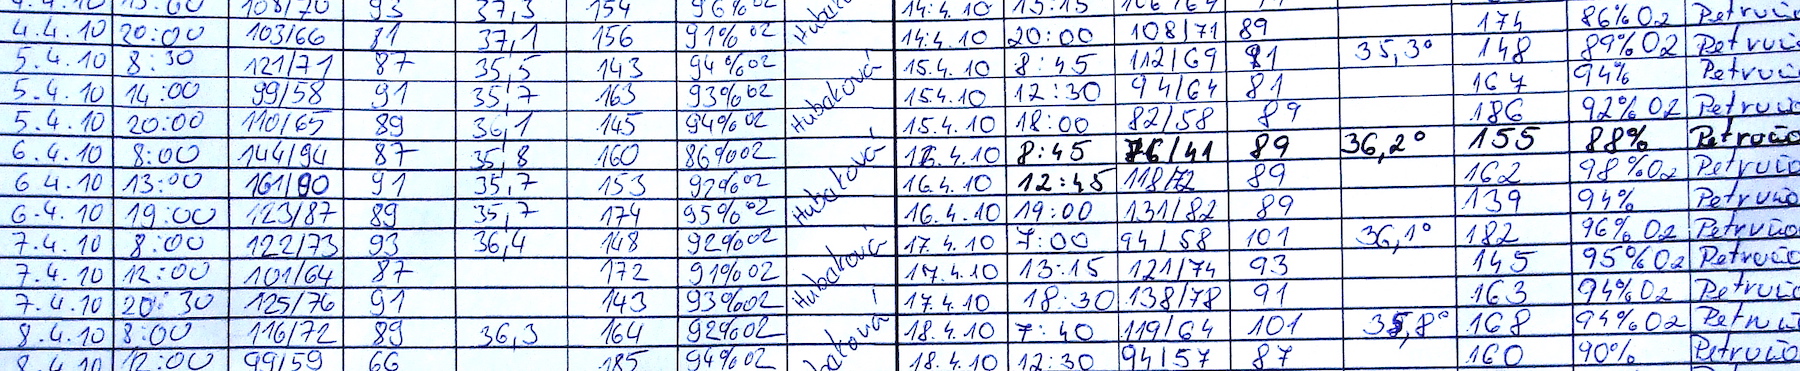 4.4.10 13:00 108/70 93 37,3 154 96%O2 14.4.10 15:15
4.4.10 20:00 103/66 81 37,1 156 91%O2 14.4.10 20:00 108/71 89 174 86%O2 Petrušo
5.4.10 8:30 121/71 87 35,5 143 94%O2 Hubaková 15.4.10 8:45 112/69 81 35,3° 148 89%O2
5.4.10 14:00 99/58 91 35,7 163 93%O2 15.4.10 12:30 94/64 81 167 94%
5.4.10 20:00 110/65 89 36,1 145 94%O2 15.4.10 18:00 82/58 89 186 92%O2
6.4.10 8:00 144/94 87 35,8 160 86%O2 Hubaková 16.4.10 8:45 76/41 89 36,2° 155 88%
6.4.10 13:00 161/90 91 35,7 153 92%O2 16.4.10 12:45 118/72 89 162 98%O2
6.4.10 19:00 123/87 89 35,7 174 95%O2 16.4.10 19:00 131/82 89 139 94%
7.4.10 8:00 122/73 93 36,4 148 92%O2 Hubaková 17.4.10 7:00 94/58 101 36,1° 182 96%O2
7.4.10 12:00 101/64 87 172 91%O2 17.4.10 13:15 121/74 93 145 95%O2
7.4.10 20:30 125/76 91 143 93%O2 17.4.10 18:30 138/78 91 163 94%O2
8.4.10 8:00 116/72 89 36,3 164 92%O2 18.4.10 7:40 119/64 101 35,8° 168 94%O2
8.4.10 12:00 99/59 66 185 94%O2 18.4.10 12:30 94/57 87 160 90%